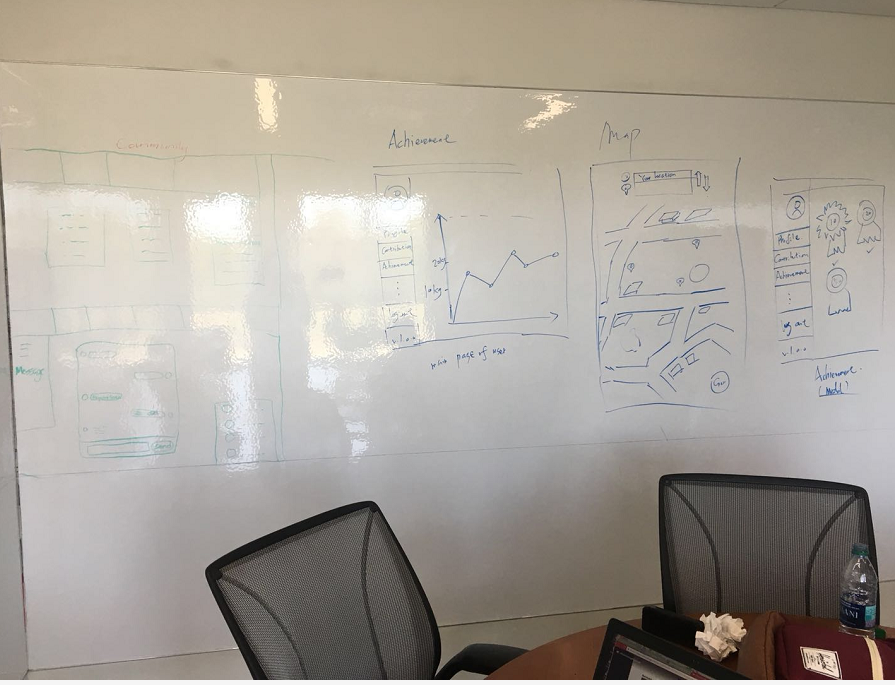 Community
Message
Achievement
Profile
Contribution
Achievement
⋮
log out
v 1.0.0
20kg
10kg
main page of user
Map
Your location
Go
Profile
Contribution
Achievement
⋮
log out
v 1.0.0
Achievement
(Medal)